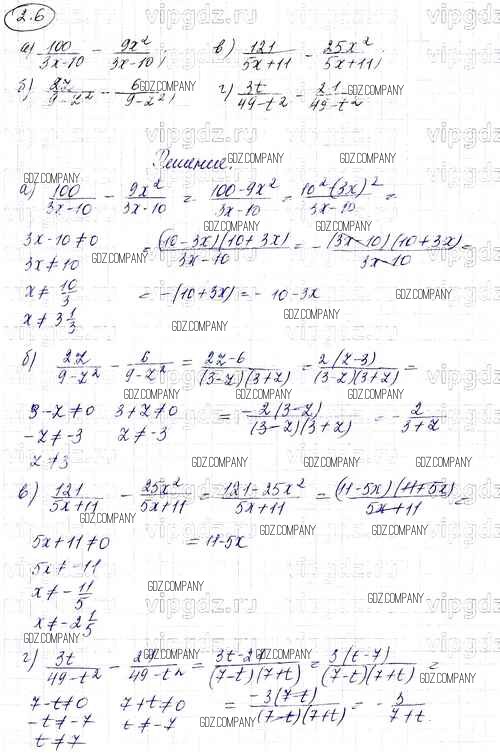 2.6
а) 100/(3x-10) - 9x²/(3x-10); в) 121/(5x+11) - 25x²/(5x+11);
б) 2z/(9-z²) - 6/(9-z²); г) 3t/(49-t²) - 21/(49-t²)
Решение.
а) 100/(3x-10) - 9x²/(3x-10) = (100-9x²)/(3x-10) = (10²-(3x)²)/(3x-10) =
3x-10≠0 = (10-3x)(10+3x)/(3x-10) = -(3x-10)(10+3x)/(3x-10) =
3x≠10
x≠ 10/3 = -(10+3x) = -10-3x
x≠ 3 1/3
б) 2z/(9-z²) - 6/(9-z²) = (2z-6)/((3-z)(3+z)) = 2(z-3)/((3-z)(3+z)) =
3-z≠0 3+z≠0 = -2(3-z)/((3-z)(3+z)) = - 2/(3+z)
-z≠-3 z≠-3
z≠3
в) 121/(5x+11) - 25x²/(5x+11) = (121-25x²)/(5x+11) = (11-5x)(11+5x)/(5x+11) =
5x+11≠0 = 11-5x
5x≠-11
x≠ - 11/5
x≠ -2 1/5
г) 3t/(49-t²) - 21/(49-t²) = (3t-21)/((7-t)(7+t)) = 3(t-7)/((7-t)(7+t)) =
7-t≠0 7+t≠0 = -3(7-t)/((7-t)(7+t)) = - 3/(7+t).
-t≠-7 t≠-7
t≠7
vipgdz.ru
GDZ.COMPANY